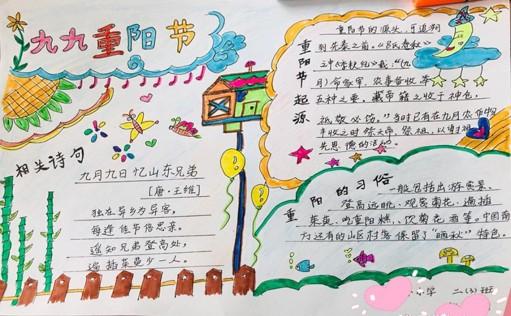 九九重阳节
相关诗句
九月九日忆山东兄弟
[唐·王维]
独在异乡为异客,
每逢佳节倍思亲。
遥知兄弟登高处,
遍插茱萸少一人。
重阳节起源
重阳节的源头,可追溯
到先秦之前。《吕氏春秋》
之中《季秋纪》载:"(九
月)命家宰,农事备收,举
五种之要。藏帝籍之收于神仓,
祗敬必饬。"当时已有在九月农作物
丰收之时祭天帝、祭祖,以谢
先恩德的活动。
重阳的习俗
一般包括出游赏景、
登高远眺、观赏菊花、遍插
茱萸、吃重阳糕、饮菊花酒等。中国南
方还有的山区村落保留了"晒秋"特色。
小学 二(3)班